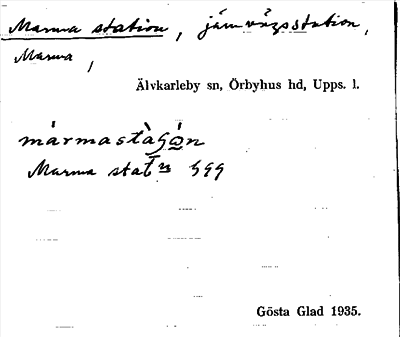 Marma station, järnvägsstation,
Marma,
Älvkarleby sn, Örbyhus hd, Upps. l.
Marma stat
Gösta Glad 1935.